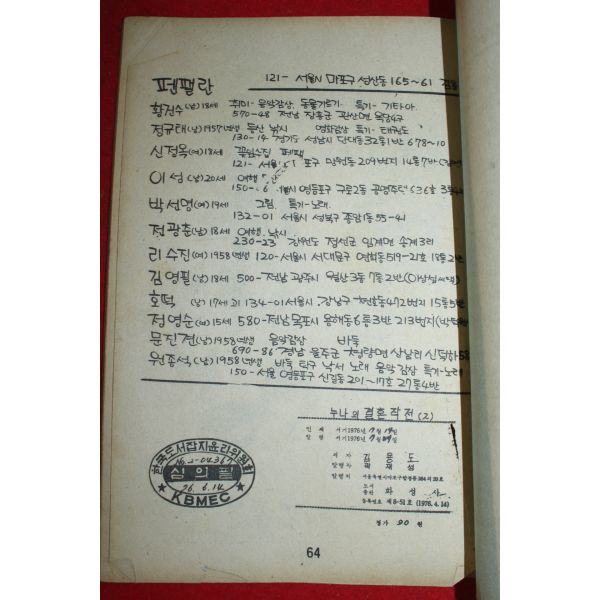 펜팰란
121- 서울시 마포구 성산동 165~61
황건수(남)18세 취미- 음악감상 동물기르기 특기- 기타아
570-48 전남 장흥군 관산면 옥당4구
정규태(남)1957년생 등산 낚시 영화감상 특기- 태권도
130-14 경기도 성남시 단대동32통1반 678~10
신정옥(여)18세 꽃잎수집 펜팰
121- 서울 포구 망원동 209번지 14통7반
이성(남)20세 여행
150- 6 영등포구 구로2동 공영주택 636호
박선명(여)19세 그림 특기-노래
132-01 서울시 성북구 종암동 55-41
전광춘(남)18세 여행 낚시
230-23 강원도 정선군 임계면 송계3리
리수진(여)1958년생 120-서울시 서대문구 연희동519-21호 18통2반
김영필(남)18세 500-전남 광주시 월산3동 7통2반(이상섭씨댁)
호떡 (남)17세 134-01서울시 강남구 472번지 15통5반
정영순(여)15세 580-전남 목포시 용해동6통3반 213번지
문진경(남)1958년생 음악감상 바둑
690-86 경남 울주군 청량면 상남리 신덕하
원종석(남)1958년생 바둑 탁구 낙서 노래 음악감상 특기-노래
150-서울 영등포구 신길동 201~17호 27통4반
누나의 결혼작전 (2)
인쇄 서기1976년
발행 서기1976년
저자 김용도
발행자 곽재섭
발행처
도서출판 화성사
등록번호 제8-51호 (1976. 4. 14)
정가 90 원
한국도서잡지윤리위원회
심의필
76. 6. 14
KBMEC
64